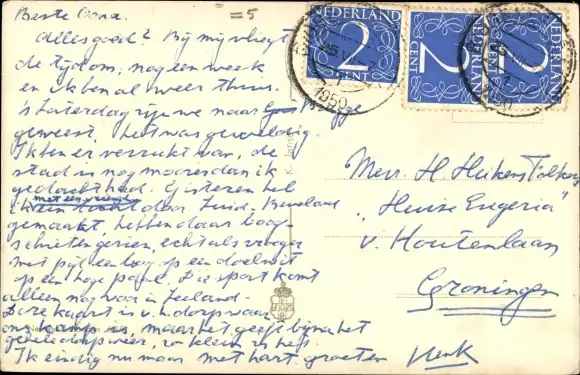 Beste Oma. = 5
Alles goed? Bij mij vliegt
de tijd om, nog een week
en ik ben al weer thuis.
's Zaterdag zijn we naar Brugge
geweest, het was geweldig.
Ik ben er verrukt van, de
stad is nog mooier dan ik
gedacht had. Gisteren heb
met een vriend
ik een tocht door Zuid. Beveland
gemaakt, hebben daar boog-
schieten gezien, echt als vroeger
met pijl en boog op een doelwit
op een hoge paal. Die sport komt
alleen nog voor in Zeeland.
Deze kaart is v.h. dorp waar
ons kamp is, maar het geeft bijna het
gehele dorp weer, zo klein is het.
Ik eindig nu maar met hart. groeten Henk
NEDERLAND
2
CENT
NEDERLAND
2
CENT
NEDERLAND
2
CENT
1950
1950
Mevr. H. Huikens Tolkens
"Huize Eugeria"
v. Houtenlaan
Groningen